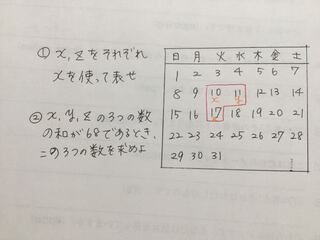 ① x, zをそれぞれ
xを使って表せ
② x, y, zの3つの数
の和が68であるとき、
この3つの数を求めよ
日 月 火 水 木 金 土
1 2 3 4 5 6 7
8 9 10 11 12 13 14
x y
15 16 17 18 19 20 21
z
22 23 24 25 26 27 28
29 30 31